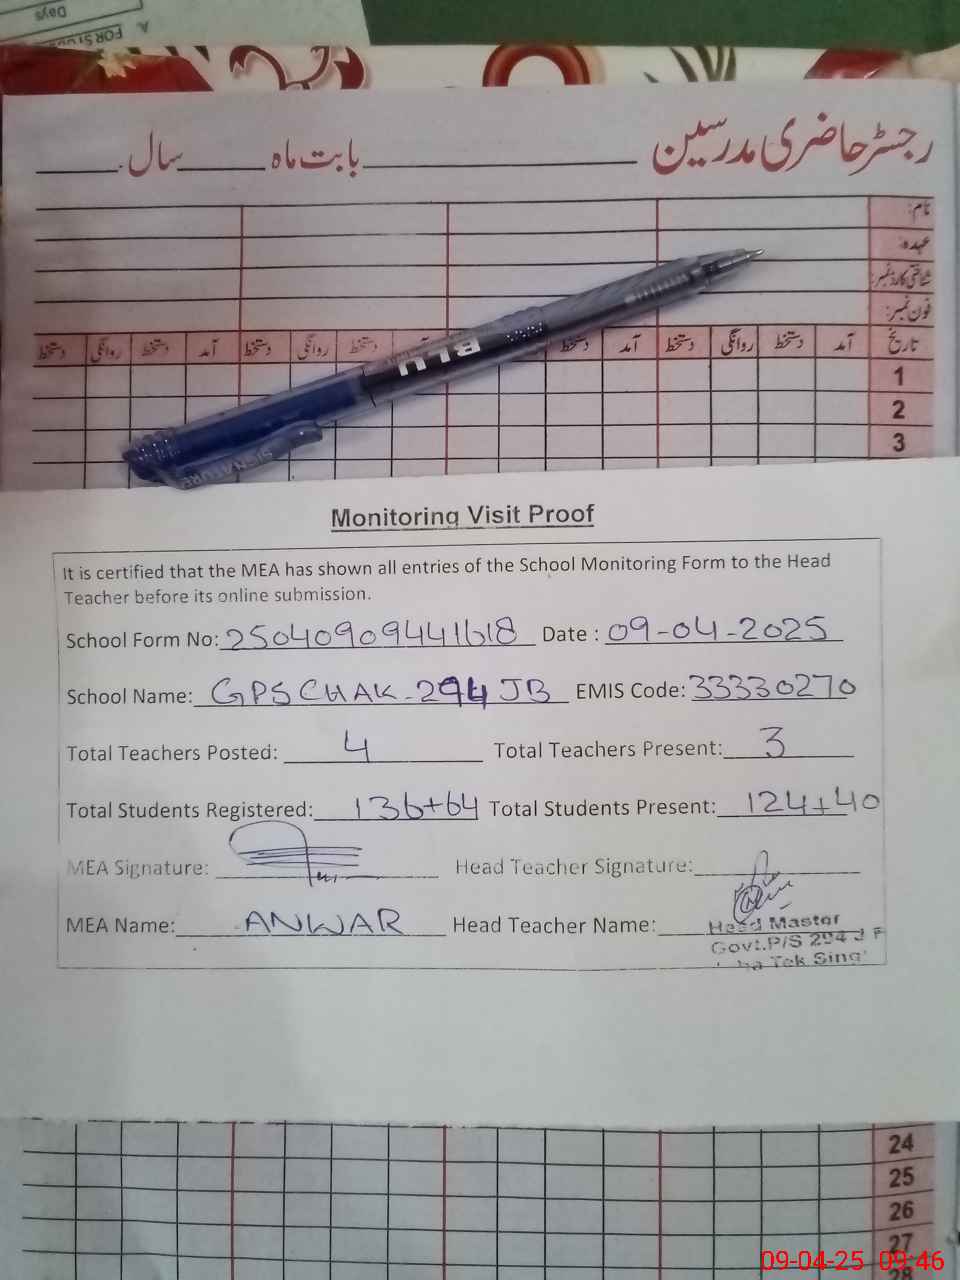 Days
A. FOR STUD
رجسٹر حاضری مدرسین ______ بابت ماہ ______ سال ______
نام:
عہدہ:
شناختی کارڈ نمبر:
فون نمبر:
تاریخ آمد دستخط روانگی دستخط آمد دستخط دستخط روانگی دستخط آمد دستخط روانگی دستخط
1
2
3
BLU
SIGNATURE
Monitoring Visit Proof
It is certified that the MEA has shown all entries of the School Monitoring Form to the Head
Teacher before its online submission.
School Form No: 25040909441618 Date : 09-04-2025
School Name: GPS CHAK-294 JB EMIS Code: 33330270
Total Teachers Posted: 4 Total Teachers Present: 3
Total Students Registered: 136+64 Total Students Present: 124+40
MEA Signature: Head Teacher Signature:
MEA Name: ANWAR Head Teacher Name:
Head Master
Govt.P/S 294 J
Tek Sing
24
25
26
27
28
09-04-25 09:46